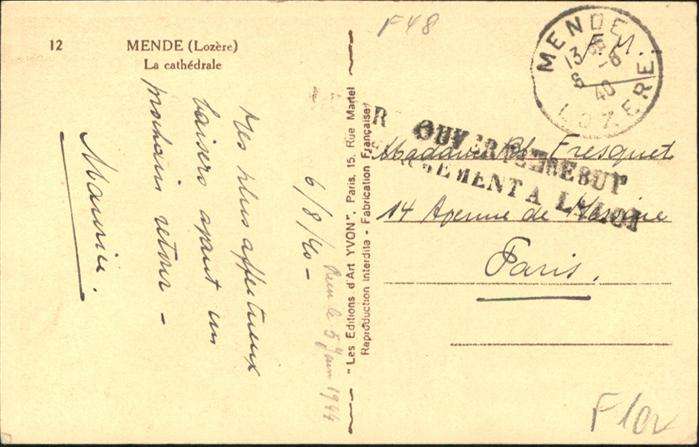 12
MENDE (Lozère)
La cathédrale
F48
Mes plus affectueux
baisers avant un
prochain retour -
Maurice.
6/8/40 -
Reçu le 5 Juin 1944
"Les Editions d'Art YVON", Paris, 15, Rue Martel
Reproduction Interdite - Fabrication Française
MENDE
13
-6
8
40
LOZERE
F.M.
R OUVERT PAR
DEBUT
A
Madame Fresquet
14 Avenue de
Paris.
F10r